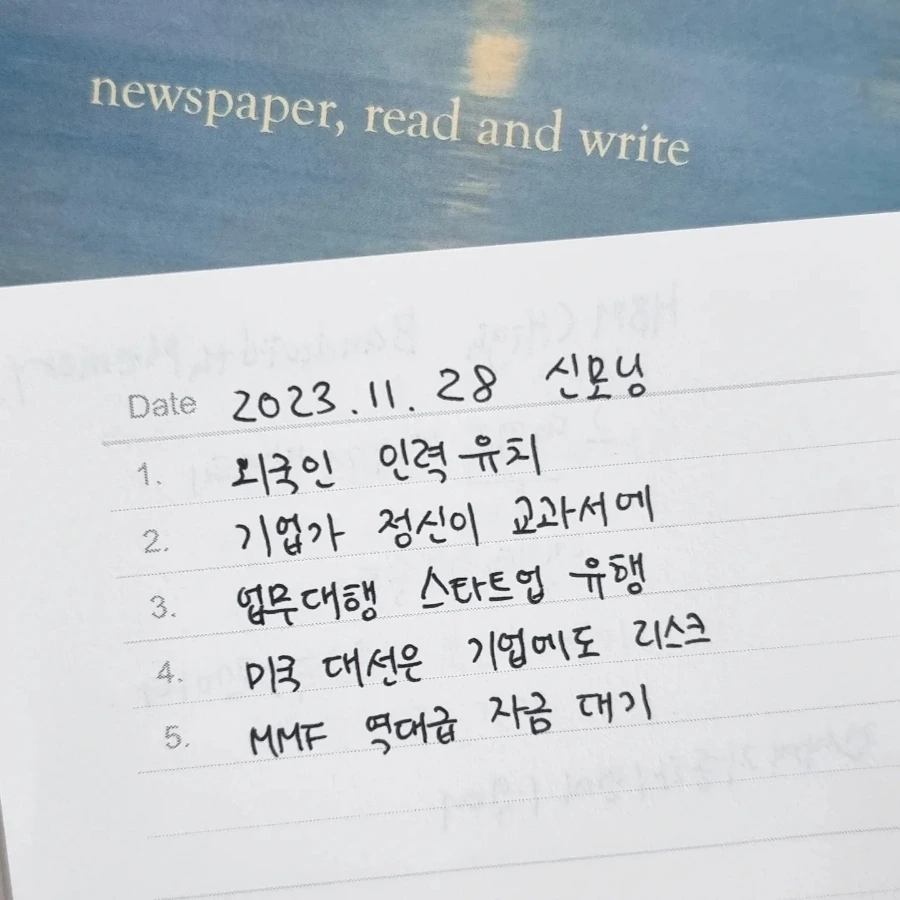 newspaper, read and write
Date 2023.11.28 신모닝
1. 외국인 인력 유치
2. 기업가 정신이 교과서에
3. 업무대행 스타트업 유행
4. 미국 대선은 기업에도 리스크
5. MMF 역대급 자금 대기